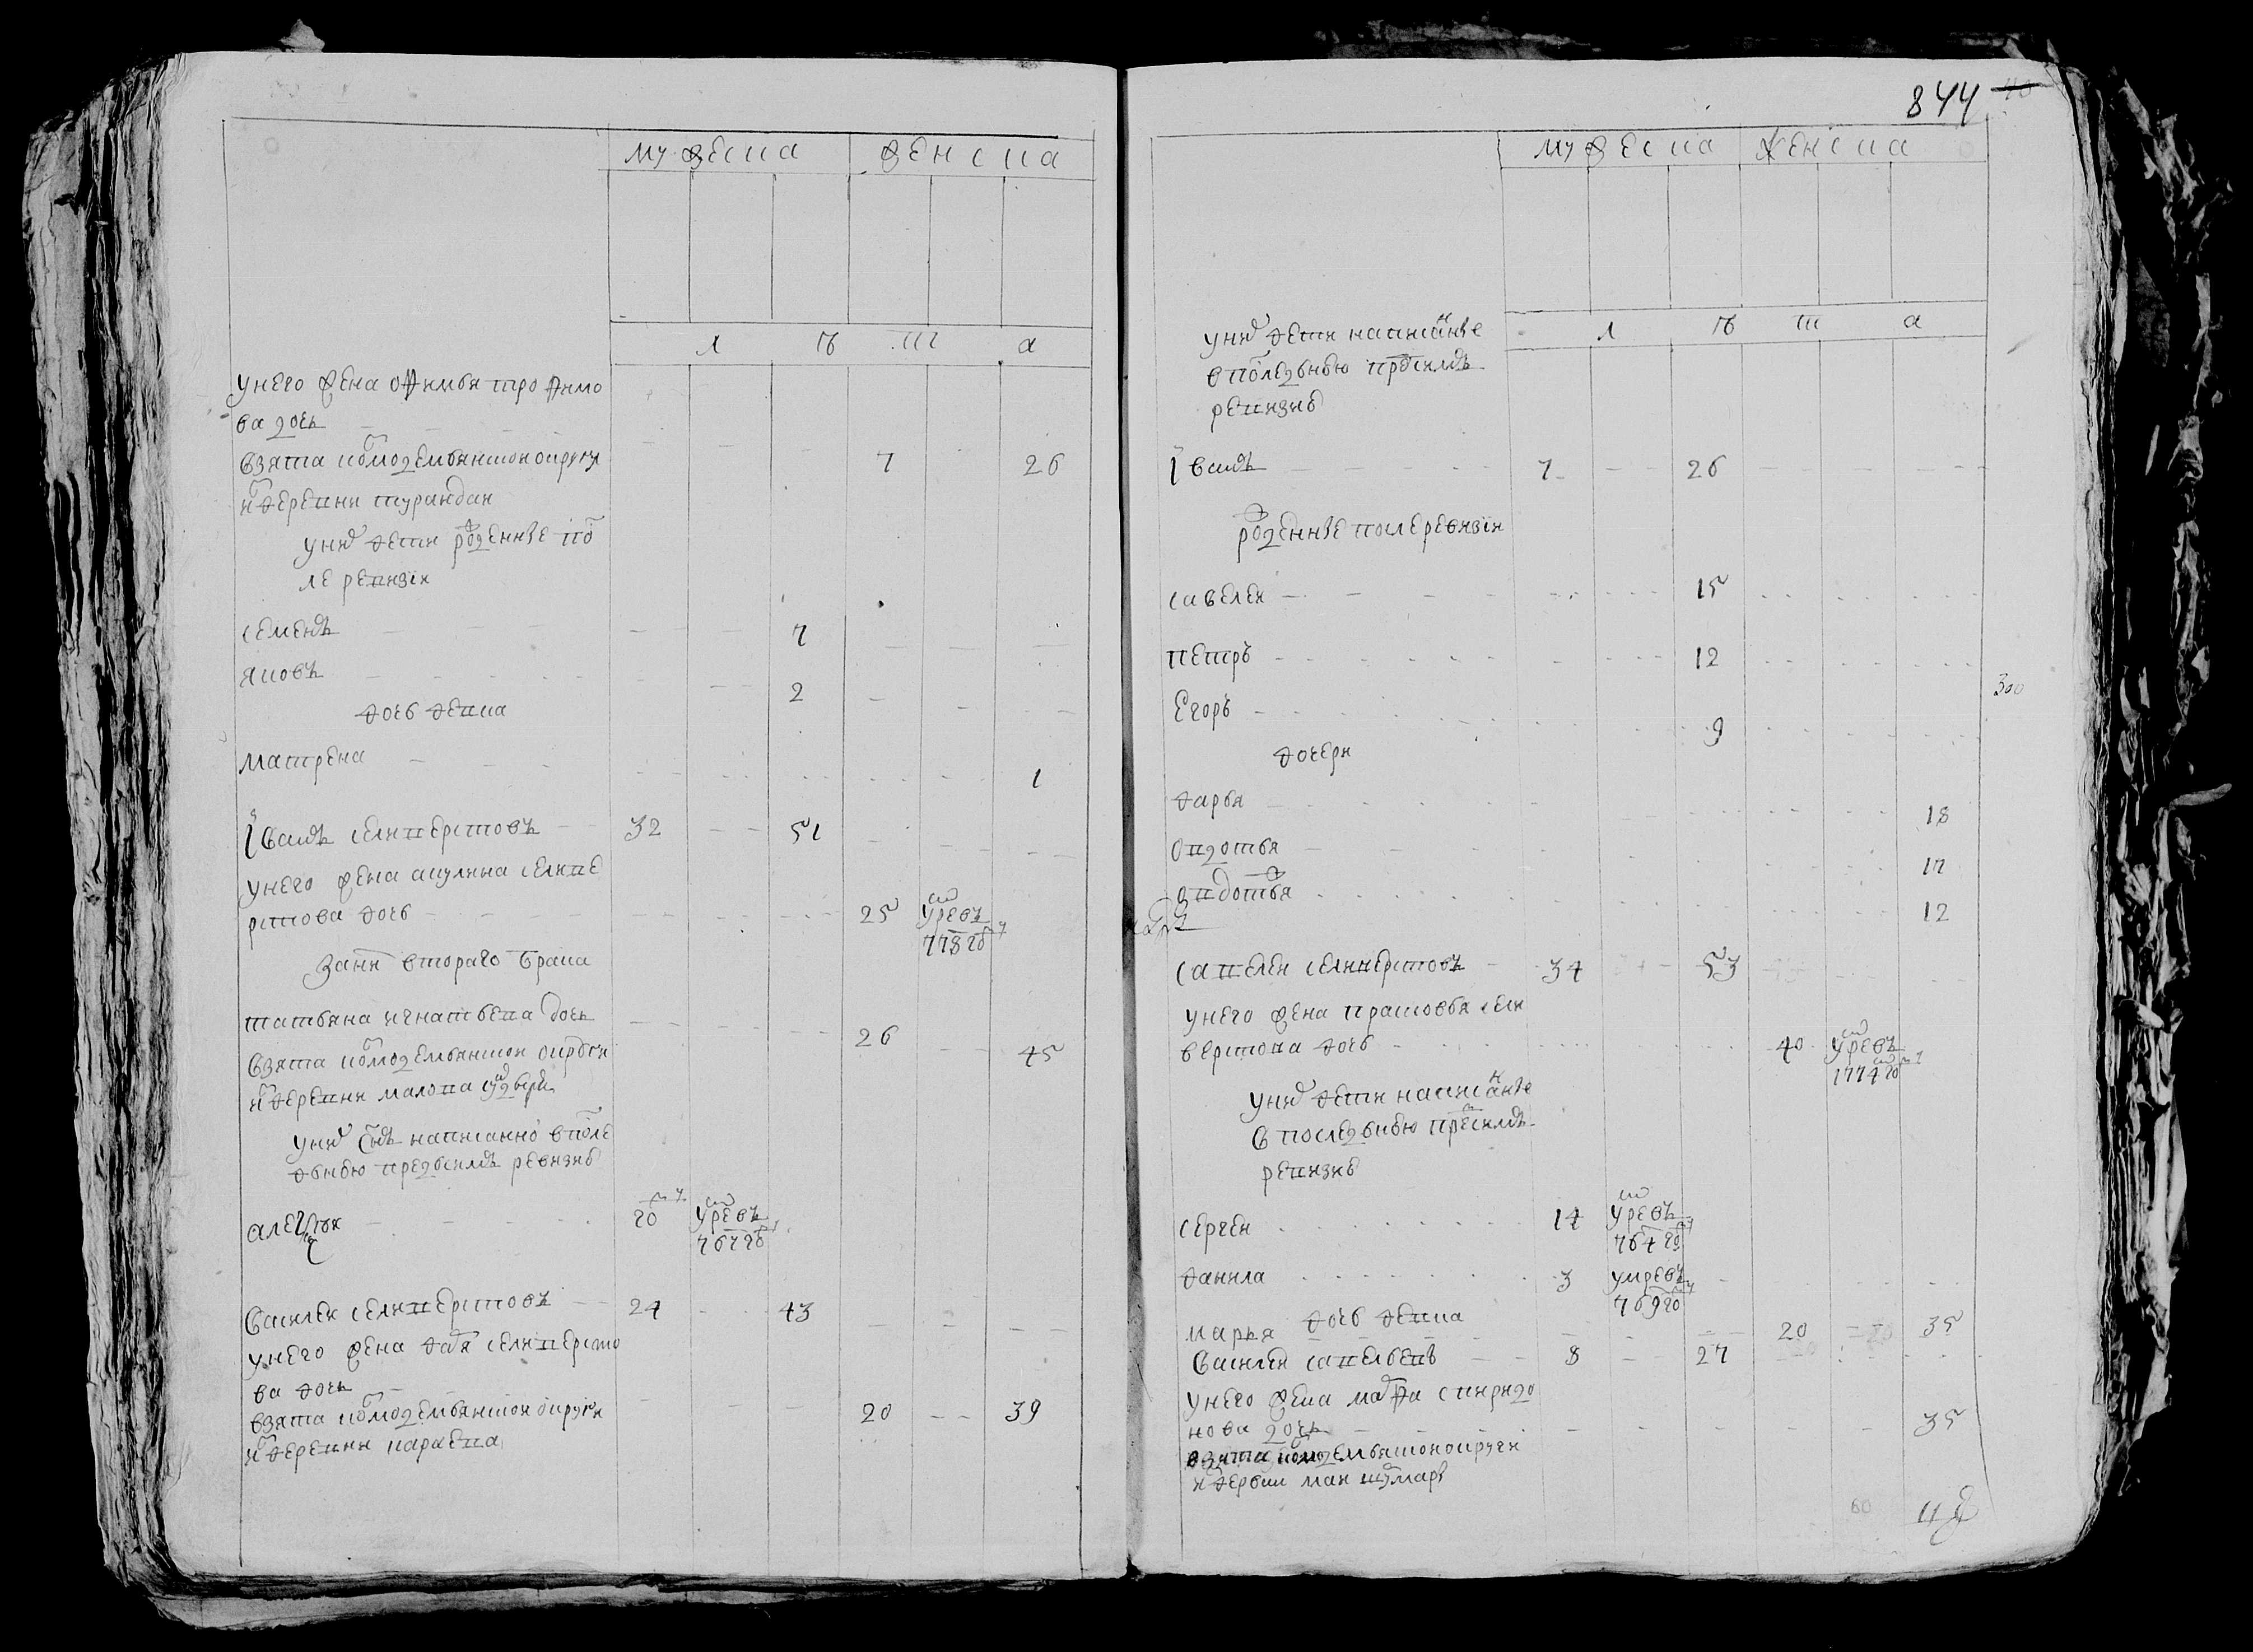 844
мужеска женска
л ѣ т а
у него жена офимья трофимо
ва дочь
взята козмодемьянской округи 7 26
из деревни турандан
у них дети рожденные пос
ле ревизии
семенъ 7
яковъ 2
дочь девка
матрена 1
Іванъ селиверстовъ 32 51
у него жена акулина селиве
рстова дочь 25 умре въ
778 году
за ним второго брака
татьяна игнатьева дочь 26 45
взята козмодемьянской округи
из деревни малова
у них сынъ написанной в после
днюю пред симъ ревизию
алексей 20 умре въ
767 году
Василей селиверстовъ 24 43
у него жена дарья селиверсто
ва дочь
взята козмодемьянской округи 20 39
из деревни караева
мужеска женска
л ѣ т а
у них дети написанные
в последнюю пред симъ
ревизию
Іванъ 7 26
рожденные после ревизии
савелей 15
петръ 12
Егоръ 9
300
дочери
дарья 18
овдотья 17
овдотья ж 12
савелей селиверстовъ 34 53
у него жена прасковья сели
верстова дочь 40 умре въ
1774 году
у них дети написанные
в последнюю пред симъ
ревизию
сергей 14 умре въ
764 году
данила 3 умре въ
769 году
дочь девка
марья 20 35
Василей савельевъ 8 27
у него жена марфа спиридо
нова дочь 35
взята козмодемьянской округи
из деревни